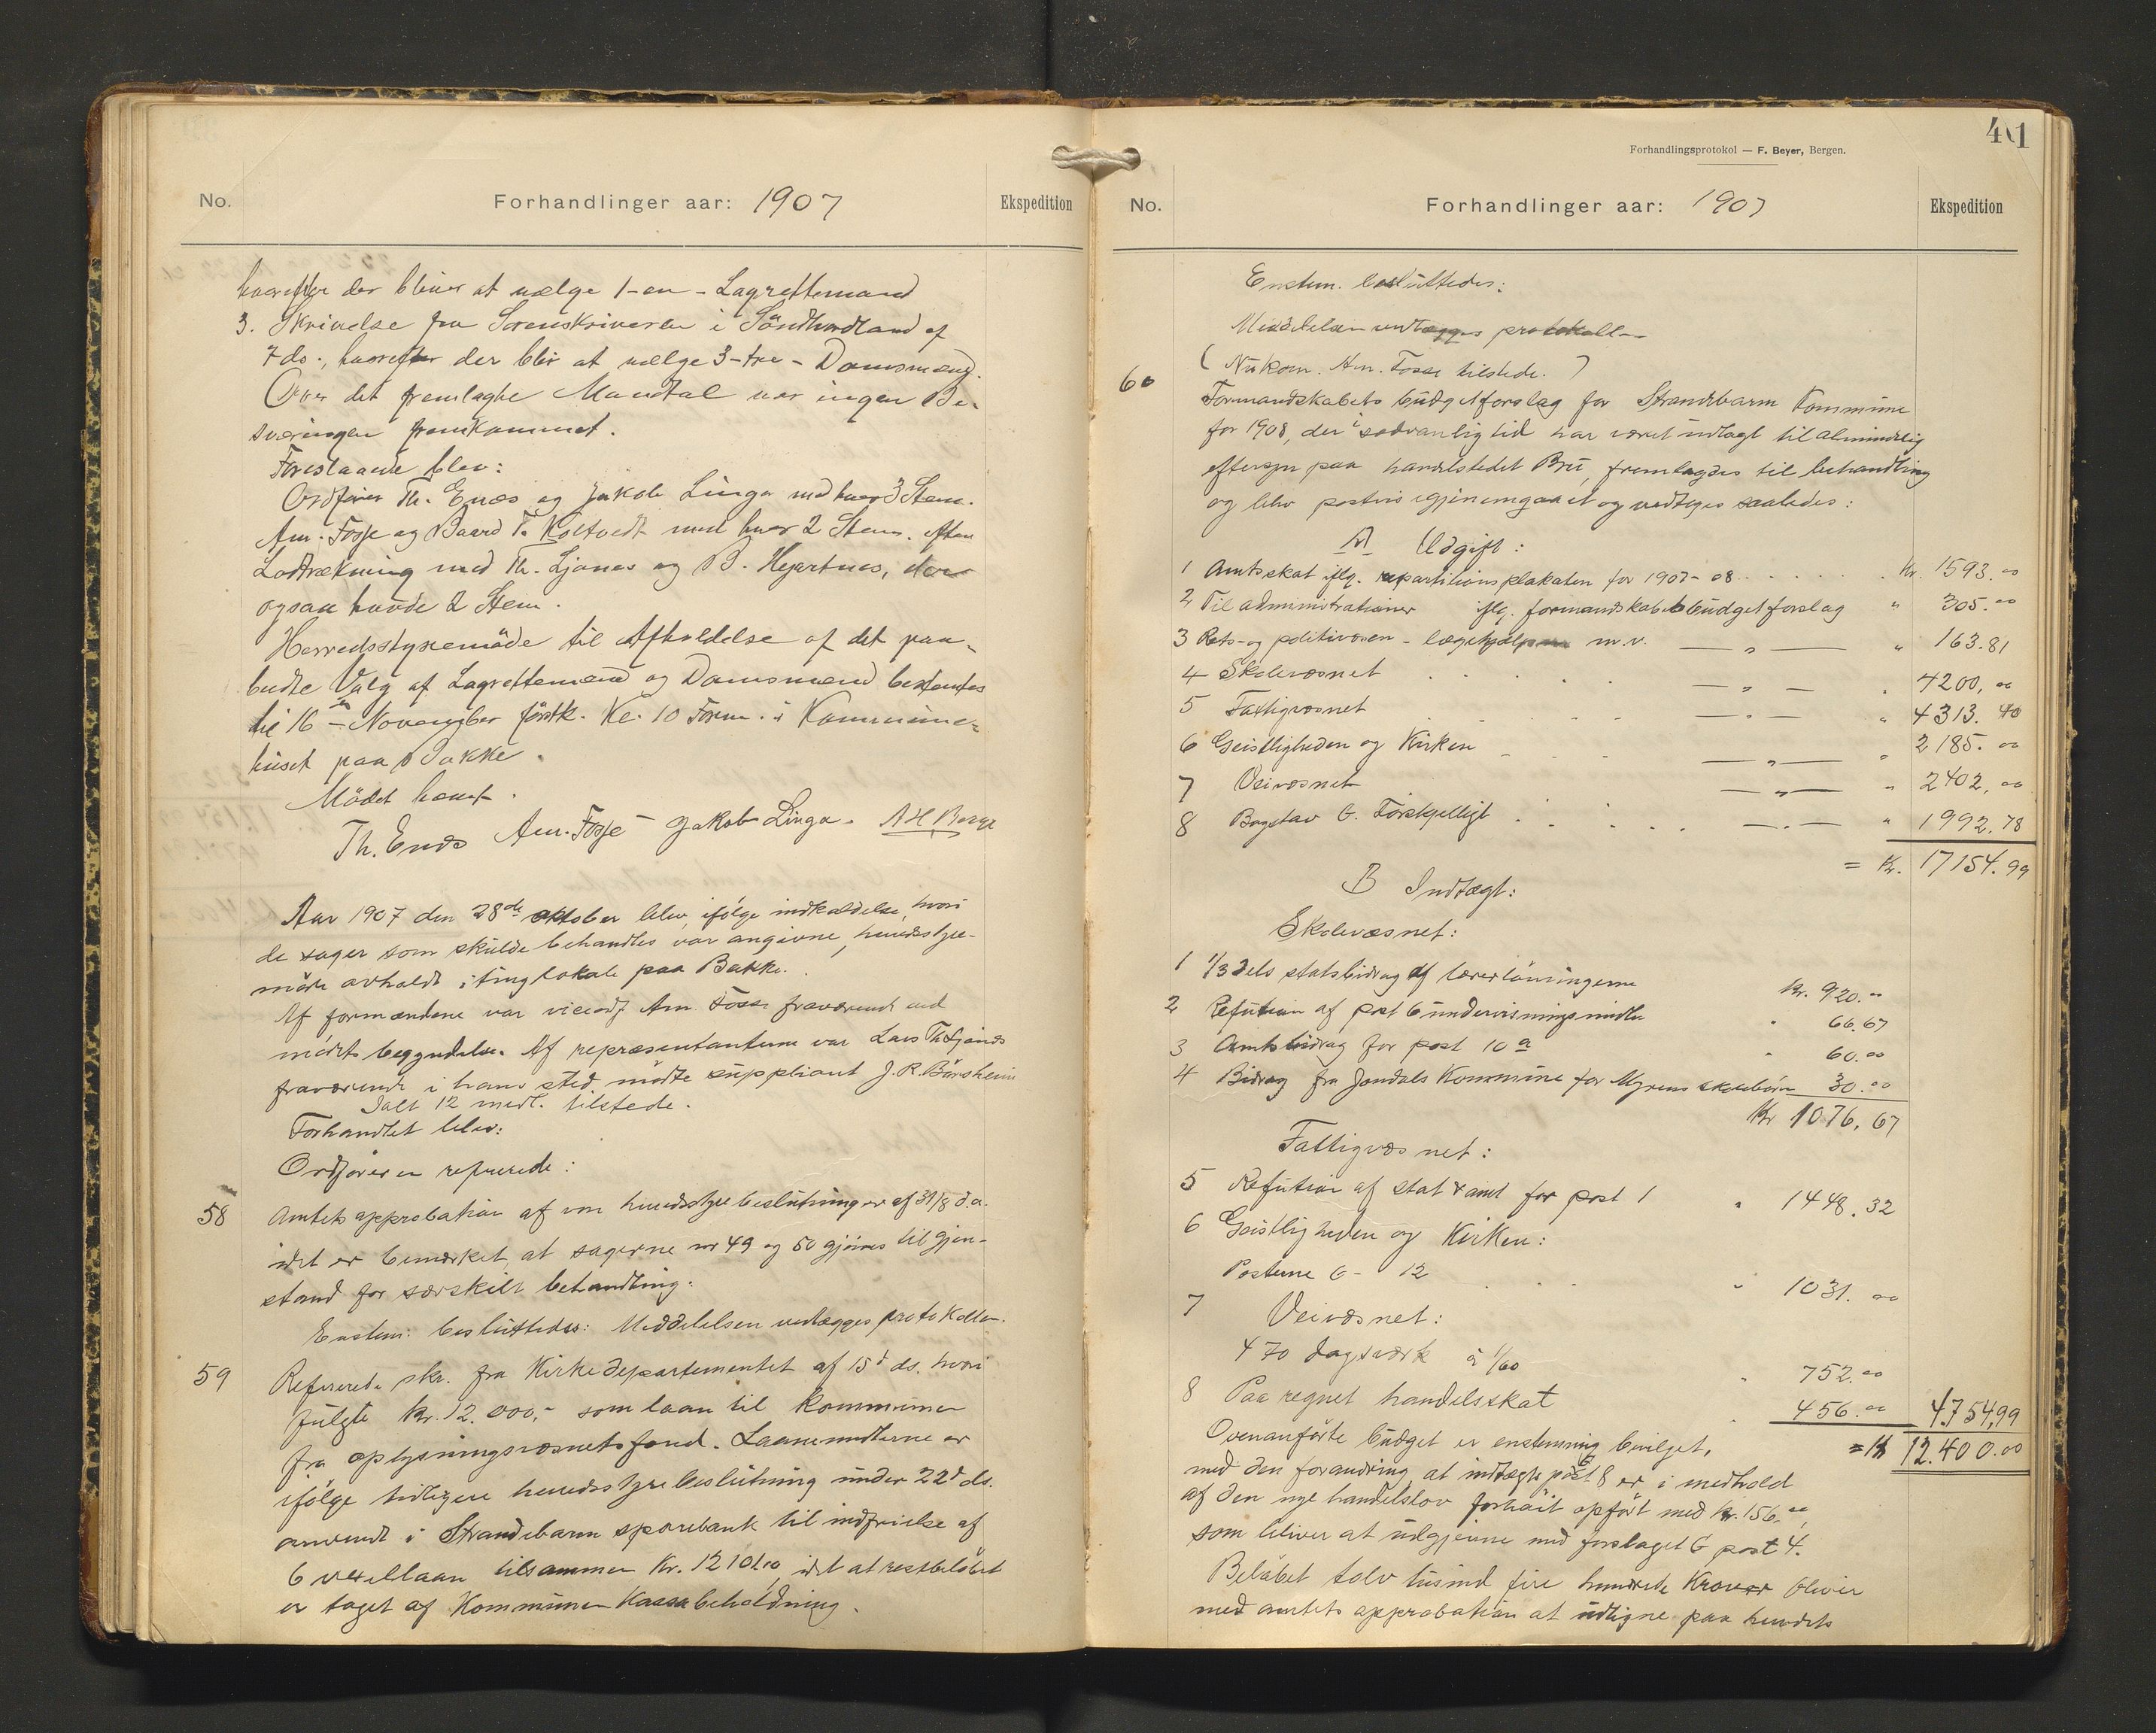 No.
Forhandlinger aar: 1907
Ekspedition
hvorefter der bliver at vælge 1-en-Lagrettemand
3. Skrivelse fra Sorenskriveren i Söndhordland af
7 ds., hvorefter der blir at vælge 3-tre-Domsmænd.
Over det fremlagte Mandtal var ingen Be-
sværinger fremkommet.
Foreslaaede blev:
Ordfører Th. Enæs og Jakob Linga med hver 3 Stem.
Am. Fosse og Baard T. Koltvedt med hver 2 Stem. efter
Lodtrækning med Th. Ljones og B. Hejartnes, der
ogsaa havde 2 Stem.
Herredsstyremöde til Afholdelse af det paa-
budte Valg af Lagrettemænd og Domsmænd berammedes
til 16 de November förstk. Kl. 10 Form. i Kommune-
huset paa Bakke.
Mödet hævet.
Th. Enæs Am. Fosse Jakob Linga. A H Berge
Aar 1907 den 28de oktober blev, ifölge indkaldelse, hvori
de sager som skulde behandles var angivne, herredsstyre-
möde avholdt i tinglokale paa Bakke.
Af formændene var viceordf Am Fosse fraværende ved
mödets begyndelse. Af repræsentanterne var Lars Th Ljones
fraværende i hans sted mödte suppliant J. R. Börsheim
Ialt 12 medl. tilstede.
Forhandlet blev:
Ordföreren refererede:
58 Amtets approbation af vore herredsstyrebeslutninger af 31/8 d.a.
idet er bemærket, at sagerne nr 49 og 50 gjöres til gjen-
stand for særskilt behandling.
Enstem: besluttedes: Meddelelsen vedlægges protokollen.
59 Refererede skr. fra Kirkedepartementet af 15d ds. hvori
fulgte kr. 12.000,- som laan til kommunen
fra oplysningsvæsnets fond. Laanemidlerne er
ifölge tidligere herredsstyrebeslutning under 22d ds.
anvendt i Strandebarm sparebank til indfrielse af
6 vexellaan tilsammen Kr. 12101.10, idet at restbelöbet
er taget af Kommunens Kassabeholdning.
401
Forhandlingsprotokol — F. Beyer, Bergen.
No.
Forhandlinger aar: 1907
Ekspedition
Enstem. besluttedes:
Meddelelsen vedlægges protokollen
( Nu kom Am. Fosse tilstede. )
60 Formandskabets budgetforslag for Strandebarm Kommune
for 1908, der i sedvanlig tid har været udlagt til almindelig
eftersyn paa handelstedet Bru, fremlagdes til behandling
og blev postvis igjennemgaaet og vedtoges saaledes:
A Udgift:
1 Amtsskat iflg. repartitionsplakaten for 1907-08 . . . . Kr. 1593.00
2 Til administrationer iflg. formandskabets budgetforslag " 305.00
3 Rets- og politivæsen - lægehjælp m.v. — " — " 163.81
4 Skolevæsnet . . . . — " — " 4200,00
5 Fattigvæsnet . . . . — " — " 4313.40
6 Geistligheden og Kirken . . . — " — " 2185.00
7 Veivæsnet — " — " 2402,00
8 Bogstav G. Forskjelligt . . . . — " — " 1992.78
= Kr. 17154.99
B Indtægt:
Skolevæsnet:
1 1/3dels statsbidrag af lærerlönningerne Kr. 920.00
2 Refusion af post 6 undervisningsmidler " 66.67
3 Amtsbidrag for post 10 a " 60.00
4 Bidrag fra Jondals Kommune for Myrens skolebörn 30.00
Kr 1076,67
Fattigvæsnet:
5 Refusion af stat & amt for post 1 " 1448.32
6 Geistligheden og Kirken:
Posterne 6 - 12 . . . " 1031.00
7 Veivæsnet:
470 dagsværk à 1/60 " 752.00
8 Paaregnet handelsskat " 456.00 4754,99
= Kr 12.400.00
Ovenanförte budget er enstemmig bevilget,
med den forandring, at indtægts post 8 er i medhold
af den nye handelslov forhöit opfört med kr. 156,00,
som bliver at udgjevne med forslaget G post 4.
Belöbet tolv tusind fire hundrede Kroner bliver
med amtets approbation at udligne paa herredets